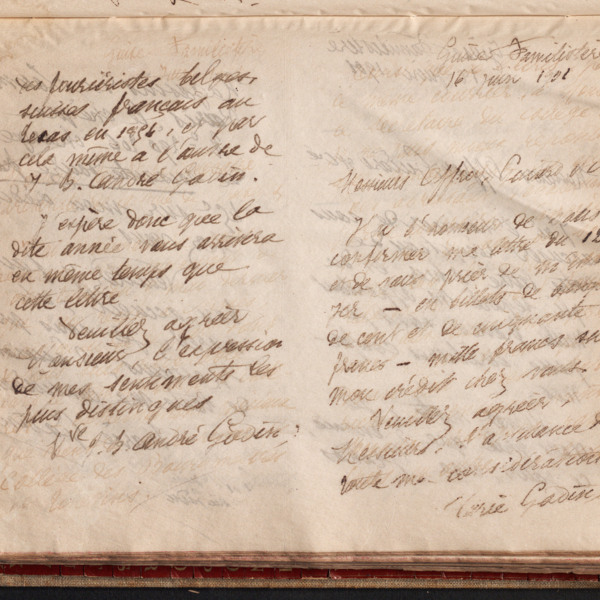 fouriéristes belges,
suisses français au
Texas en 1854, et par
cela même à l'œuvre de
J-B. André Godin.
J'espère donc que la
dite année vous arrivera
en même temps que
cette lettre
Veuillez agréer
Monsieur l'expression
de mes sentiments les
plus distingués
Vve J. B. André Godin
Guise Familistère
16 juin
Messieurs Offroy, Guiard &
J'ai l'honneur de vous
confirmer ma lettre du 12
et de vous prier de m'
ser — en billets de
de cent et de cinquante
francs — mille francs sur
mon crédit chez vous.
Veuillez agréer,
Messieurs, l'assurance de
toute ma considération
Marie Godin